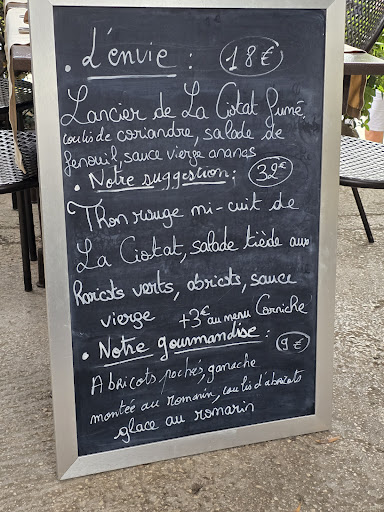 • L'envie : 18€
Lancier de La Ciotat fumé,
coulis de coriandre, salade de
fenouil, sauce vierge ananas
• Notre suggestion : 32€
Thon rouge mi-cuit de
La Ciotat, salade tiède aux
Haricots verts, abricots, sauce
vierge +3€ au menu Corniche
• Notre gourmandise : 9€
Abricots pochés, ganache
montée au romarin, coulis d'abricots
glace au romarin